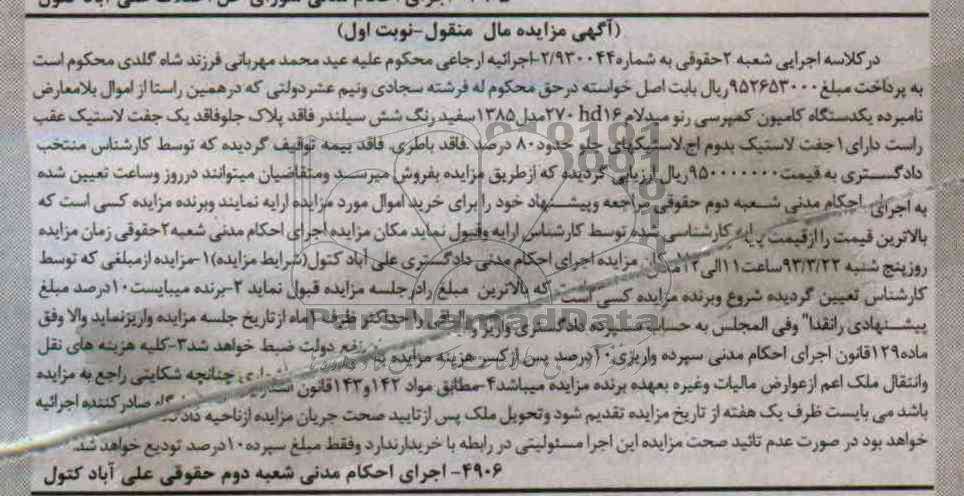 (آگهی مزایده مال منقول-نوبت اول)
درکلاسه اجرایی شعبه ۲حقوقی به شماره۲/۹۳۰۰۴۴-اجرائیه ارجاعی محکوم علیه عید محمد مهربانی فرزند شاه گلدی محکوم است
به پرداخت مبلغ ۹۵۲۶۵۳۰۰۰ریال بابت اصل خواسته درحق محکوم له فرشته سجادی ونیم عشردولتی که درهمین راستا از اموال بلامعارض
نامبرده یکدستگاه کامیون کمپرسی رنو میدلام hd۱۶ ۲۷۰مدل۱۳۸۵سفید رنگ شش سیلندر فاقد پلاک جلوفاقد یک جفت لاستیک عقب
راست دارای ۱جفت لاستیک بدوم اج لاستیکهای جلو حدود۸۰ درصد .فاقد باطری. فاقد بیمه توقیف گردیده که توسط کارشناس منتخب
دادگستری به قیمت۹۵۰۰۰۰۰۰۰ریال ارزیابی گردیده که ازطریق مزایده بفروش میرسد ومتقاضیان میتوانند درروز وساعت تعیین شده
به اجرای احکام مدنی شعبه دوم حقوقی مراجعه وپیشنهاد خود را برای خرید اموال مورد مزایده ارایه نمایند وبرنده مزایده کسی است که
بالاترین قیمت را ازقیمت پایه کارشناسی شده توسط کارشناس ارایه وقبول نماید مکان مزایده اجرای احکام مدنی شعبه۲حقوقی زمان مزایده
روزپنج شنبه ۹۳/۳/۲۲ساعت۱۱الی۱۲ مکان مزایده اجرای احکام مدنی دادگستری علی آباد کتول(شرایط مزایده)۱-مزایده ازمبلغی که توسط
کارشناس تعیین گردیده شروع وبرنده مزایده کسی است که بالاترین مبلغ رادر جلسه مزایده قبول نماید ۲-برنده میبایست۱۰درصد مبلغ
پیشنهادی رانقدا" وفی المجلس به حساب سپرده دادگستری واریز و را حداکثر ظرف ۱ماه ازتاریخ جلسه مزایده واریزنماید والا وفق
ماده۱۲۹قانون اجرای احکام مدنی سپرده واریزی۱۰درصد پس ازکسر هزینه مزایده بنفع دولت ضبط خواهد شد۳-کلیه هزینه های نقل
وانتقال ملک اعم ازعوارض مالیات وغیره بعهده برنده مزایده میباشد۴-مطابق مواد ۱۴۲و۱۴۳قانون چنانچه شکایتی راجع به مزایده
باشد می بایست ظرف یک هفته از تاریخ مزایده تقدیم شود وتحویل ملک پس ازتایید صحت جریان مزایده ازناحیه صادرکننده اجرائیه
خواهد بود در صورت عدم تائید صحت مزایده این اجرا مسئولیتی در رابطه با خریدارندارد وفقط مبلغ سپرده۱۰درصد تودیع خواهد شد.
۴۹۰۶- اجرای احکام مدنی شعبه دوم حقوقی علی آباد کتول
ParsNamadData